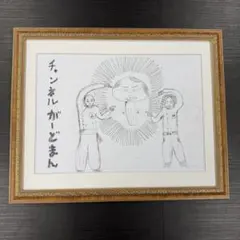 チャンネル
がーどまん